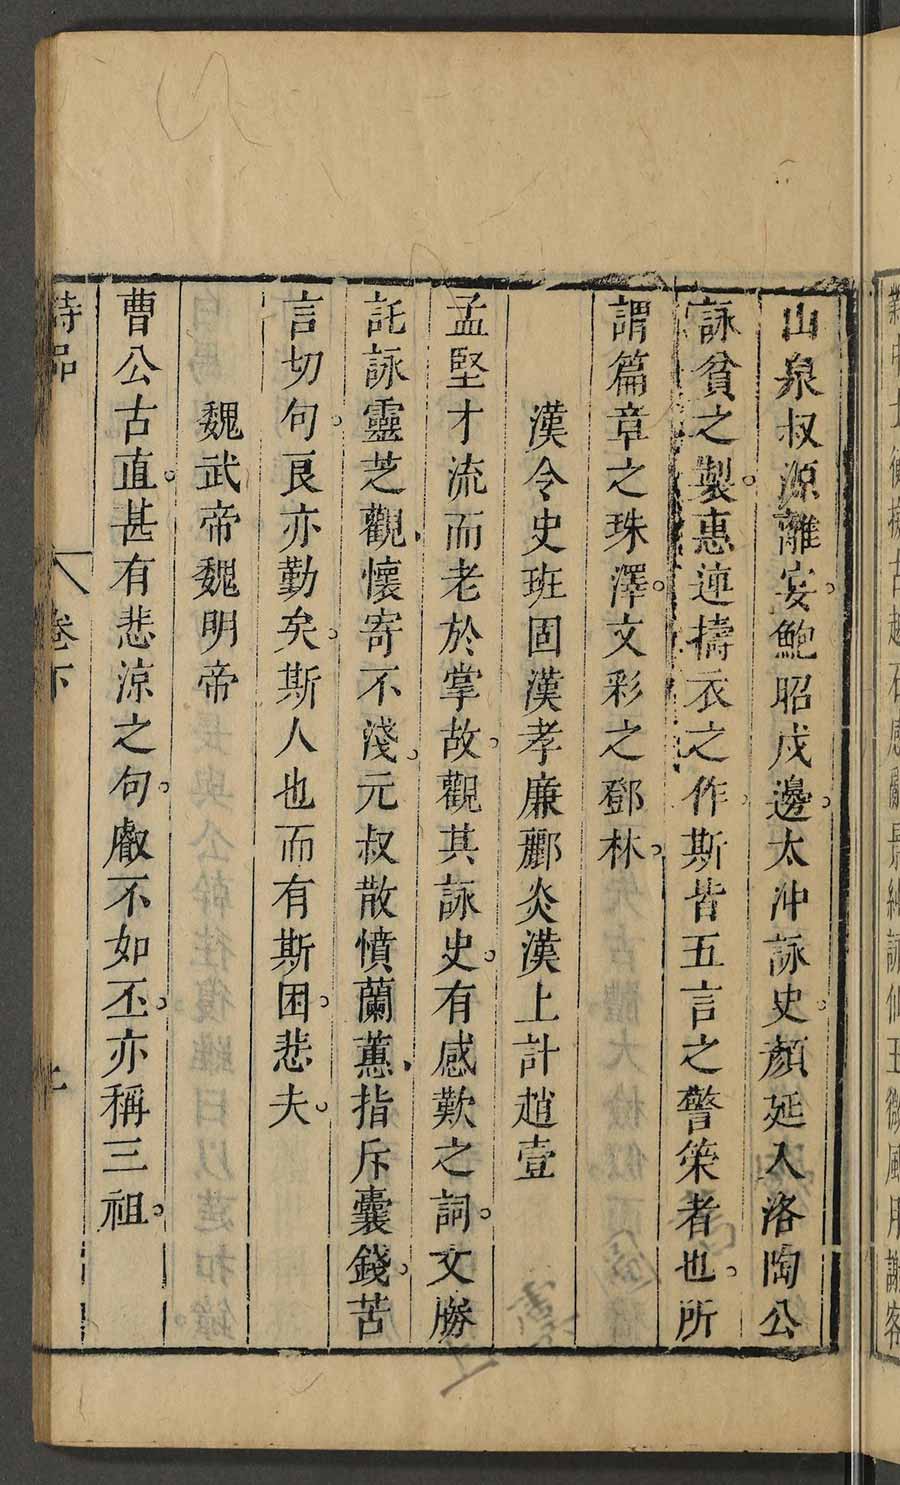 山泉叔源離宴鮑昭戍邊太冲詠史顏延入洛陶公
詠貧之製惠連擣衣之作斯皆五言之警策者也所
謂篇章之珠澤文彩之鄧林
漢令史班固漢孝廉酈炎漢上計趙壹
孟堅才流而老於掌故觀其詠史有感歎之詞文勝
託詠靈芝觀懷寄不淺元叔散憤蘭蕙指斥囊錢苦
言切句良亦勤矣斯人也而有斯困悲夫
魏武帝魏明帝
曹公古直甚有悲涼之句叡不如丕亦稱三祖
詩品
卷下